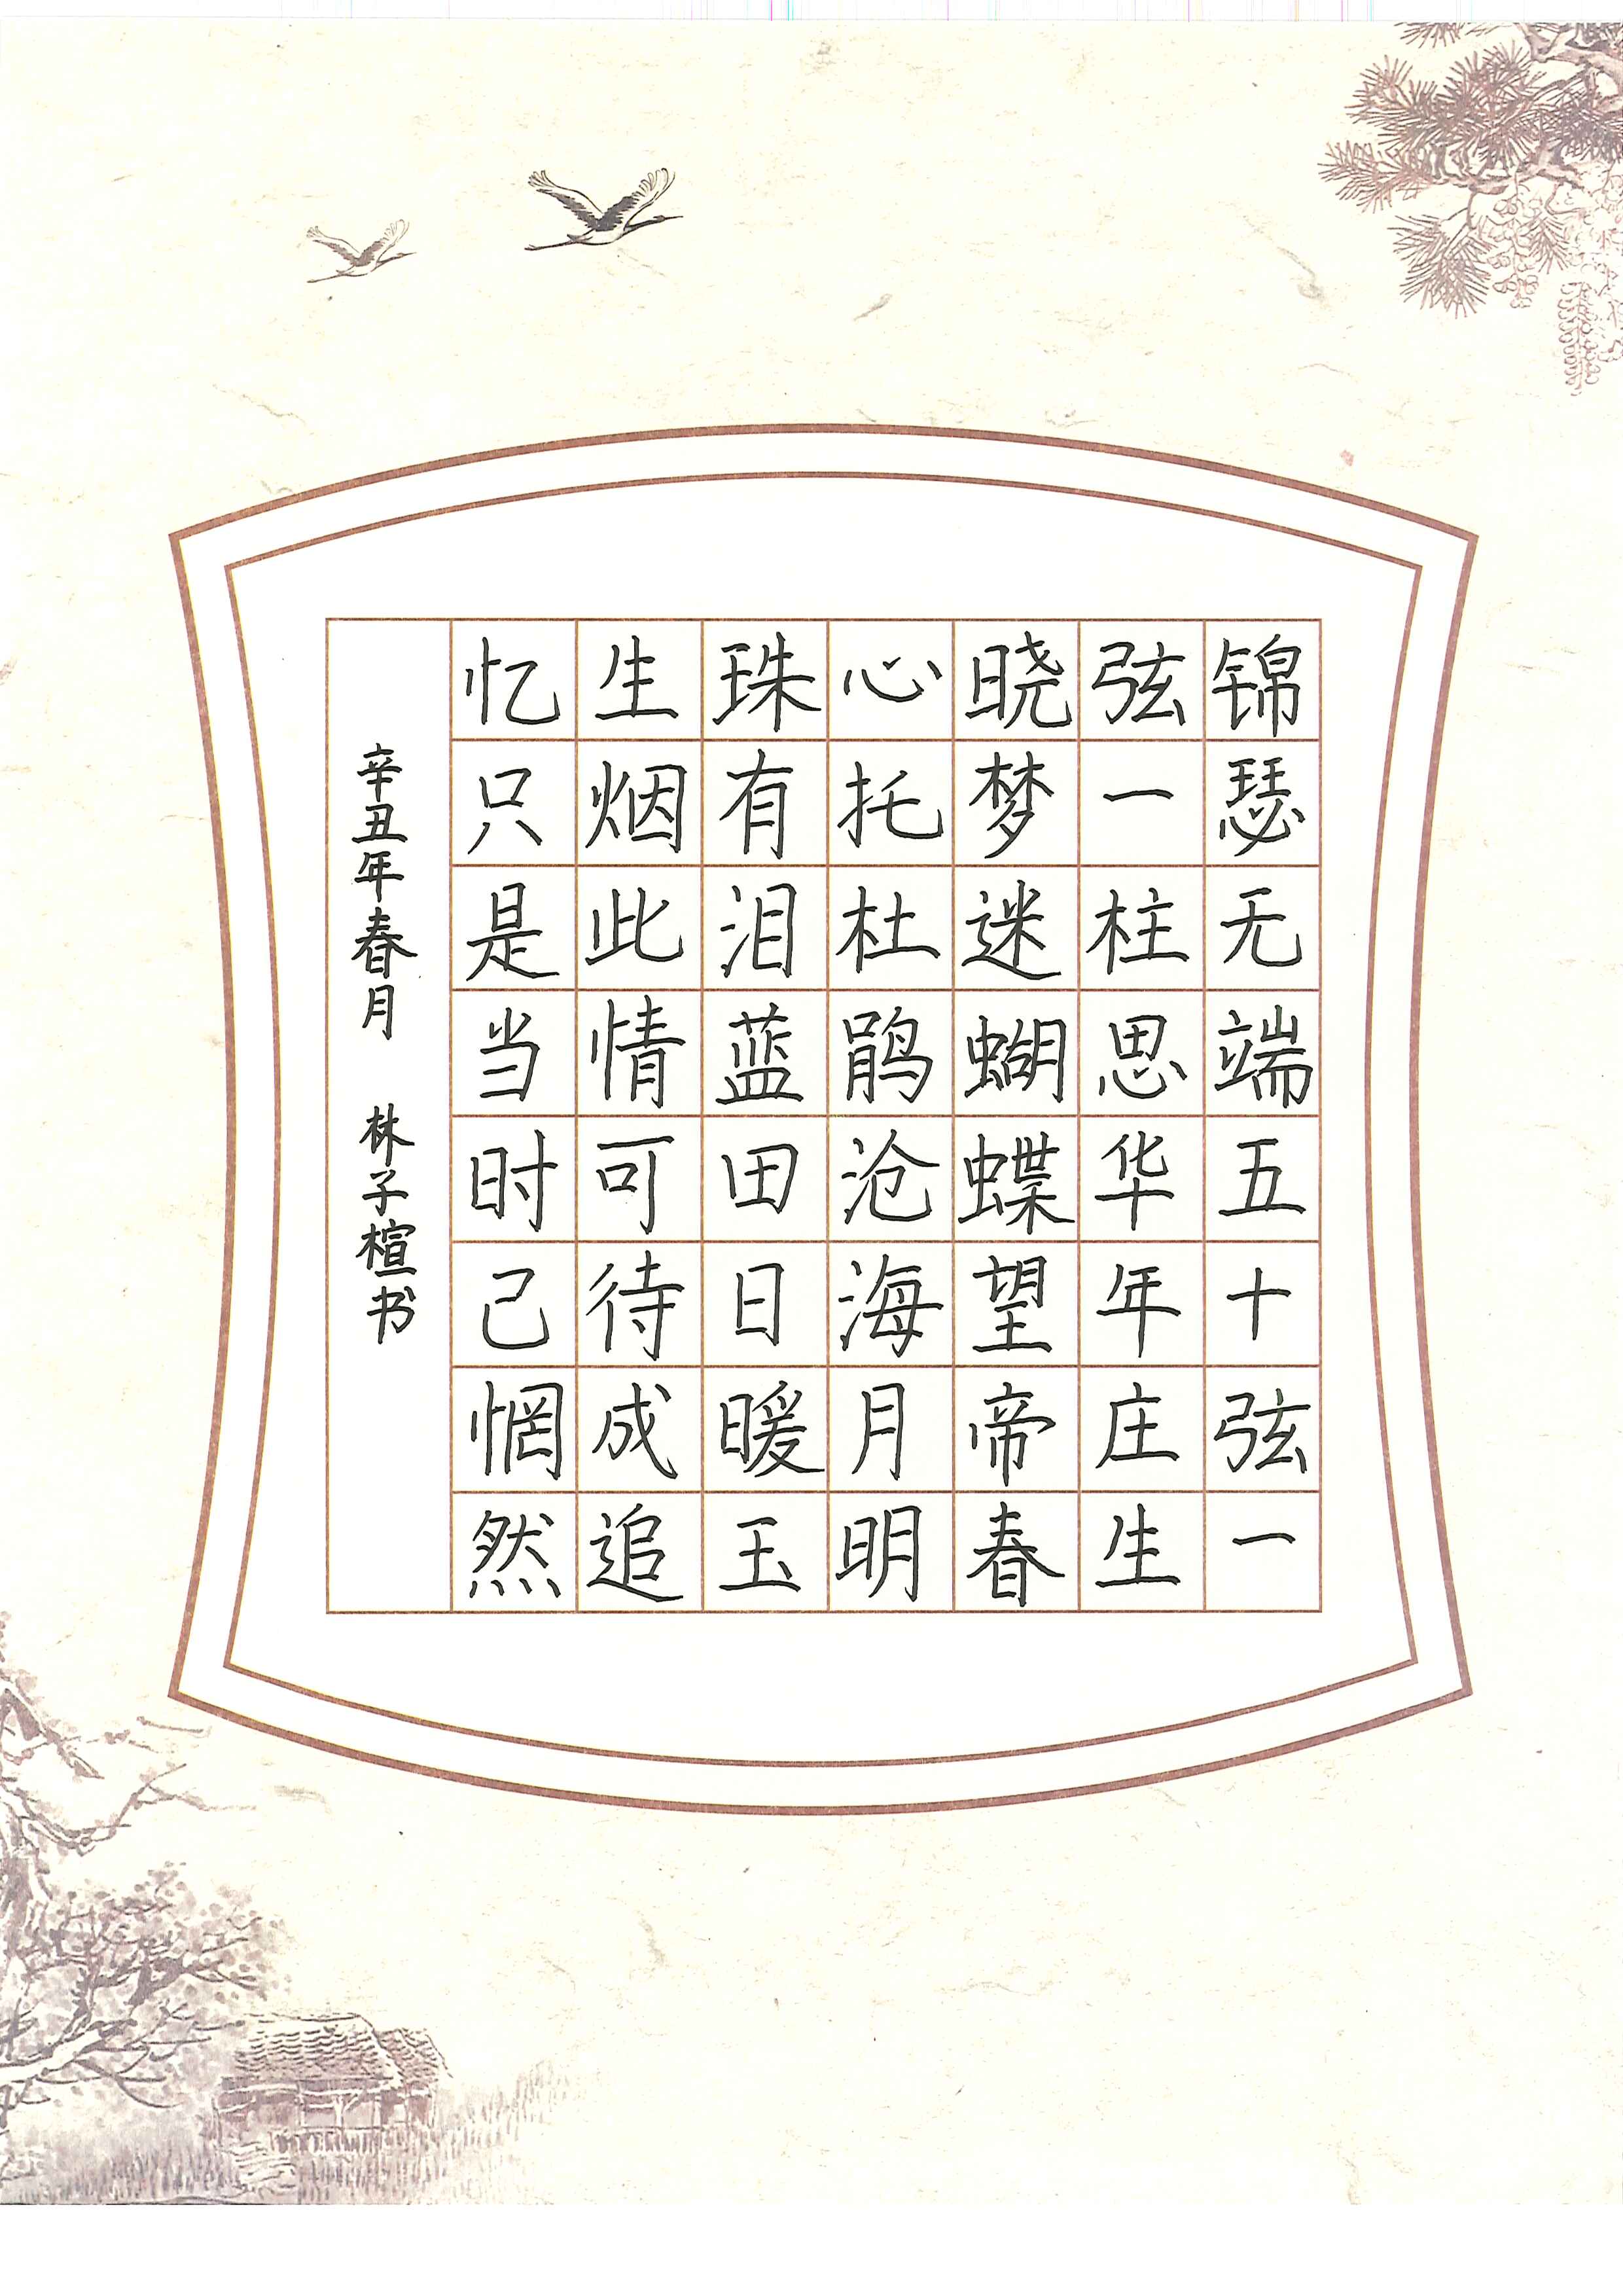 锦瑟无端五十弦一
弦一柱思华年庄生
晓梦迷蝴蝶望帝春
心托杜鹃沧海月明
珠有泪蓝田日暖玉
生烟此情可待成追
忆只是当时己惘然
辛丑年春月 林子楦书